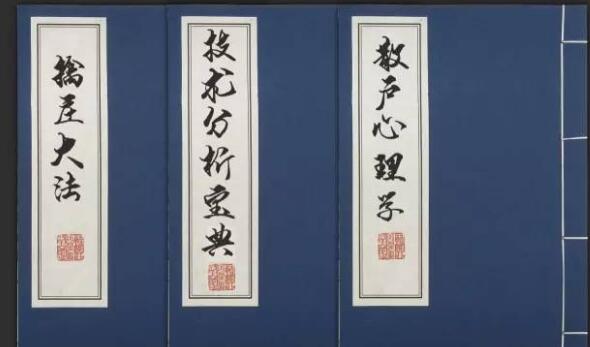 擒庄大法
技术分析宝典
散户心理学